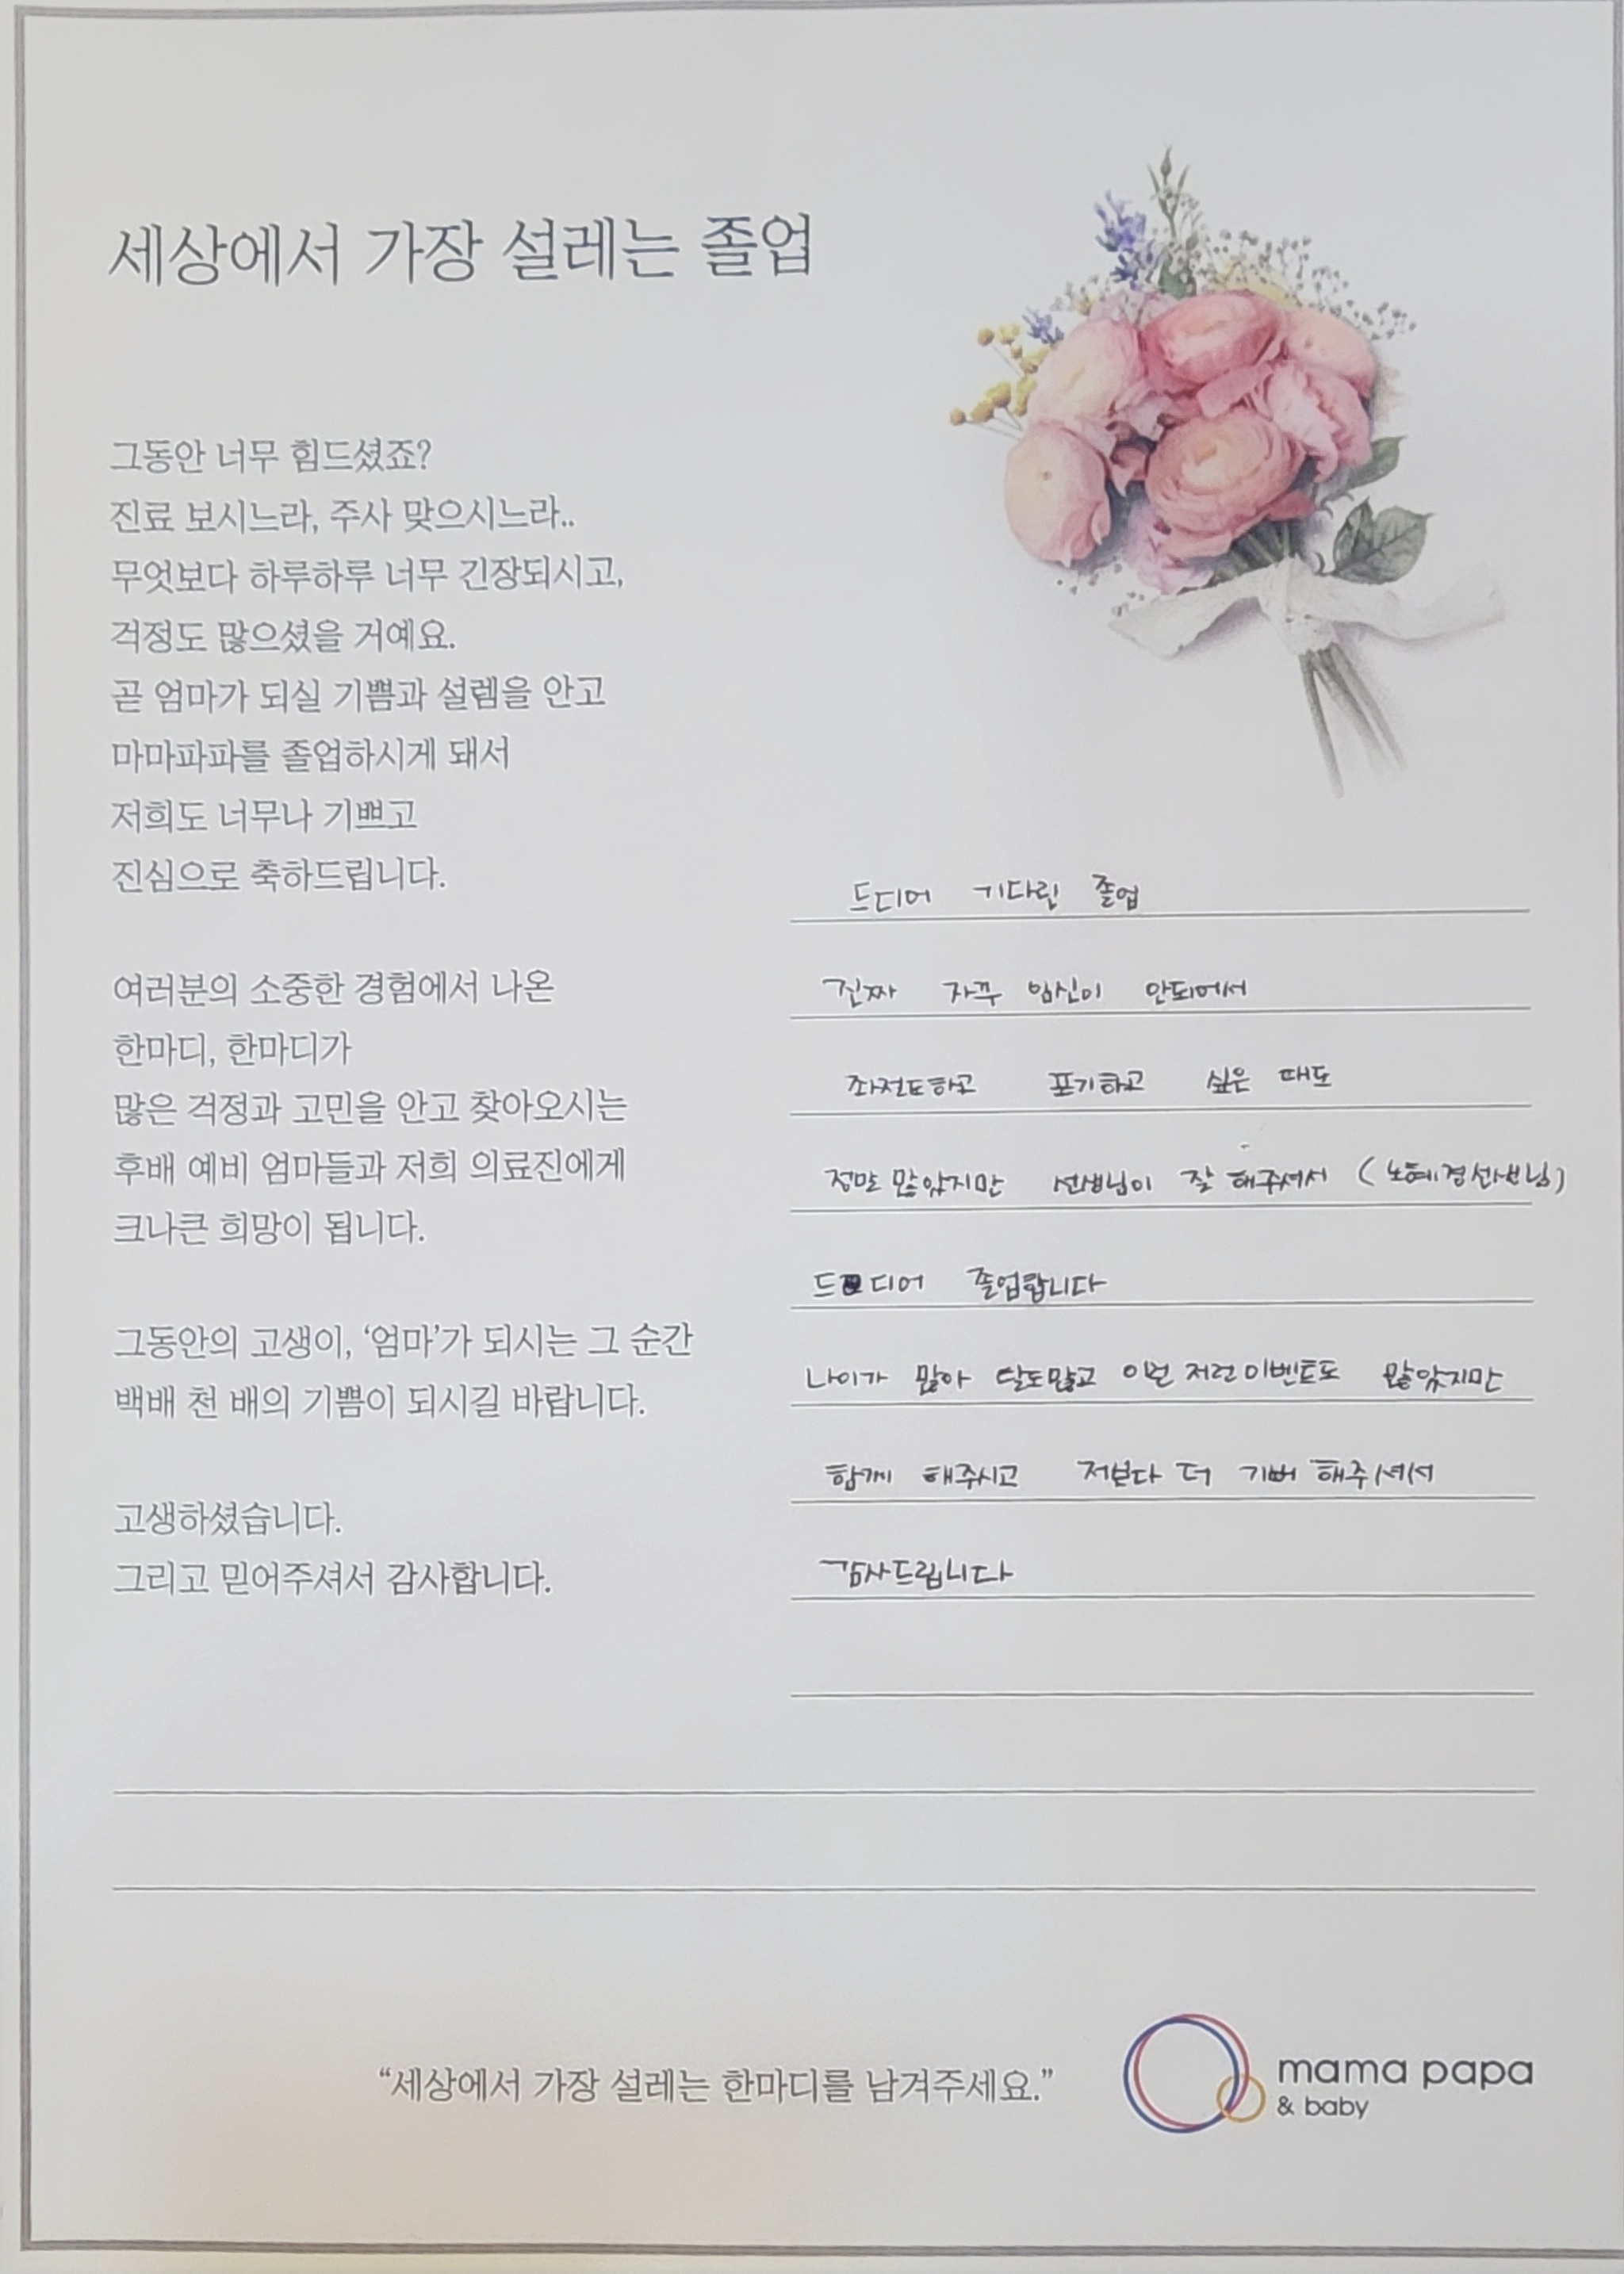 세상에서 가장 설레는 졸업
그동안 너무 힘드셨죠?
진료 보시느라, 주사 맞으시느라..
무엇보다 하루하루 너무 긴장되시고,
걱정도 많으셨을 거예요.
곧 엄마가 되실 기쁨과 설렘을 안고
마마파파를 졸업하시게 돼서
저희도 너무나 기쁘고
진심으로 축하드립니다.
여러분의 소중한 경험에서 나온
한마디, 한마디가
많은 걱정과 고민을 안고 찾아오시는
후배 예비 엄마들과 저희 의료진에게
크나큰 희망이 됩니다.
그동안의 고생이, ‘엄마’가 되시는 그 순간
백배 천 배의 기쁨이 되시길 바랍니다.
고생하셨습니다.
그리고 믿어주셔서 감사합니다.
드디어 기다린 졸업
진짜 자꾸 임신이 안되어서
좌절도하고 포기하고 싶은 때도
정말 많았지만 선생님이 잘 해주셔서 (노혜경선생님)
드디어 졸업합니다
나이가 많아 탈도많고 이런 저런이벤트도 많았지만
함께 해주시고 저보다 더 기뻐 해주셔서
감사드립니다
“세상에서 가장 설레는 한마디를 남겨주세요.”
mama papa
& baby